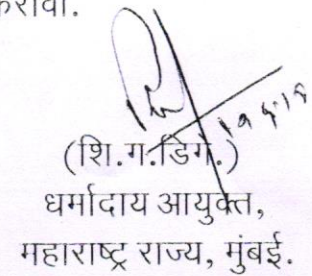 करावा.
(शि.ग.डिगे.)
धर्मादाय आयुक्त,
महाराष्ट्र राज्य, मुंबई.